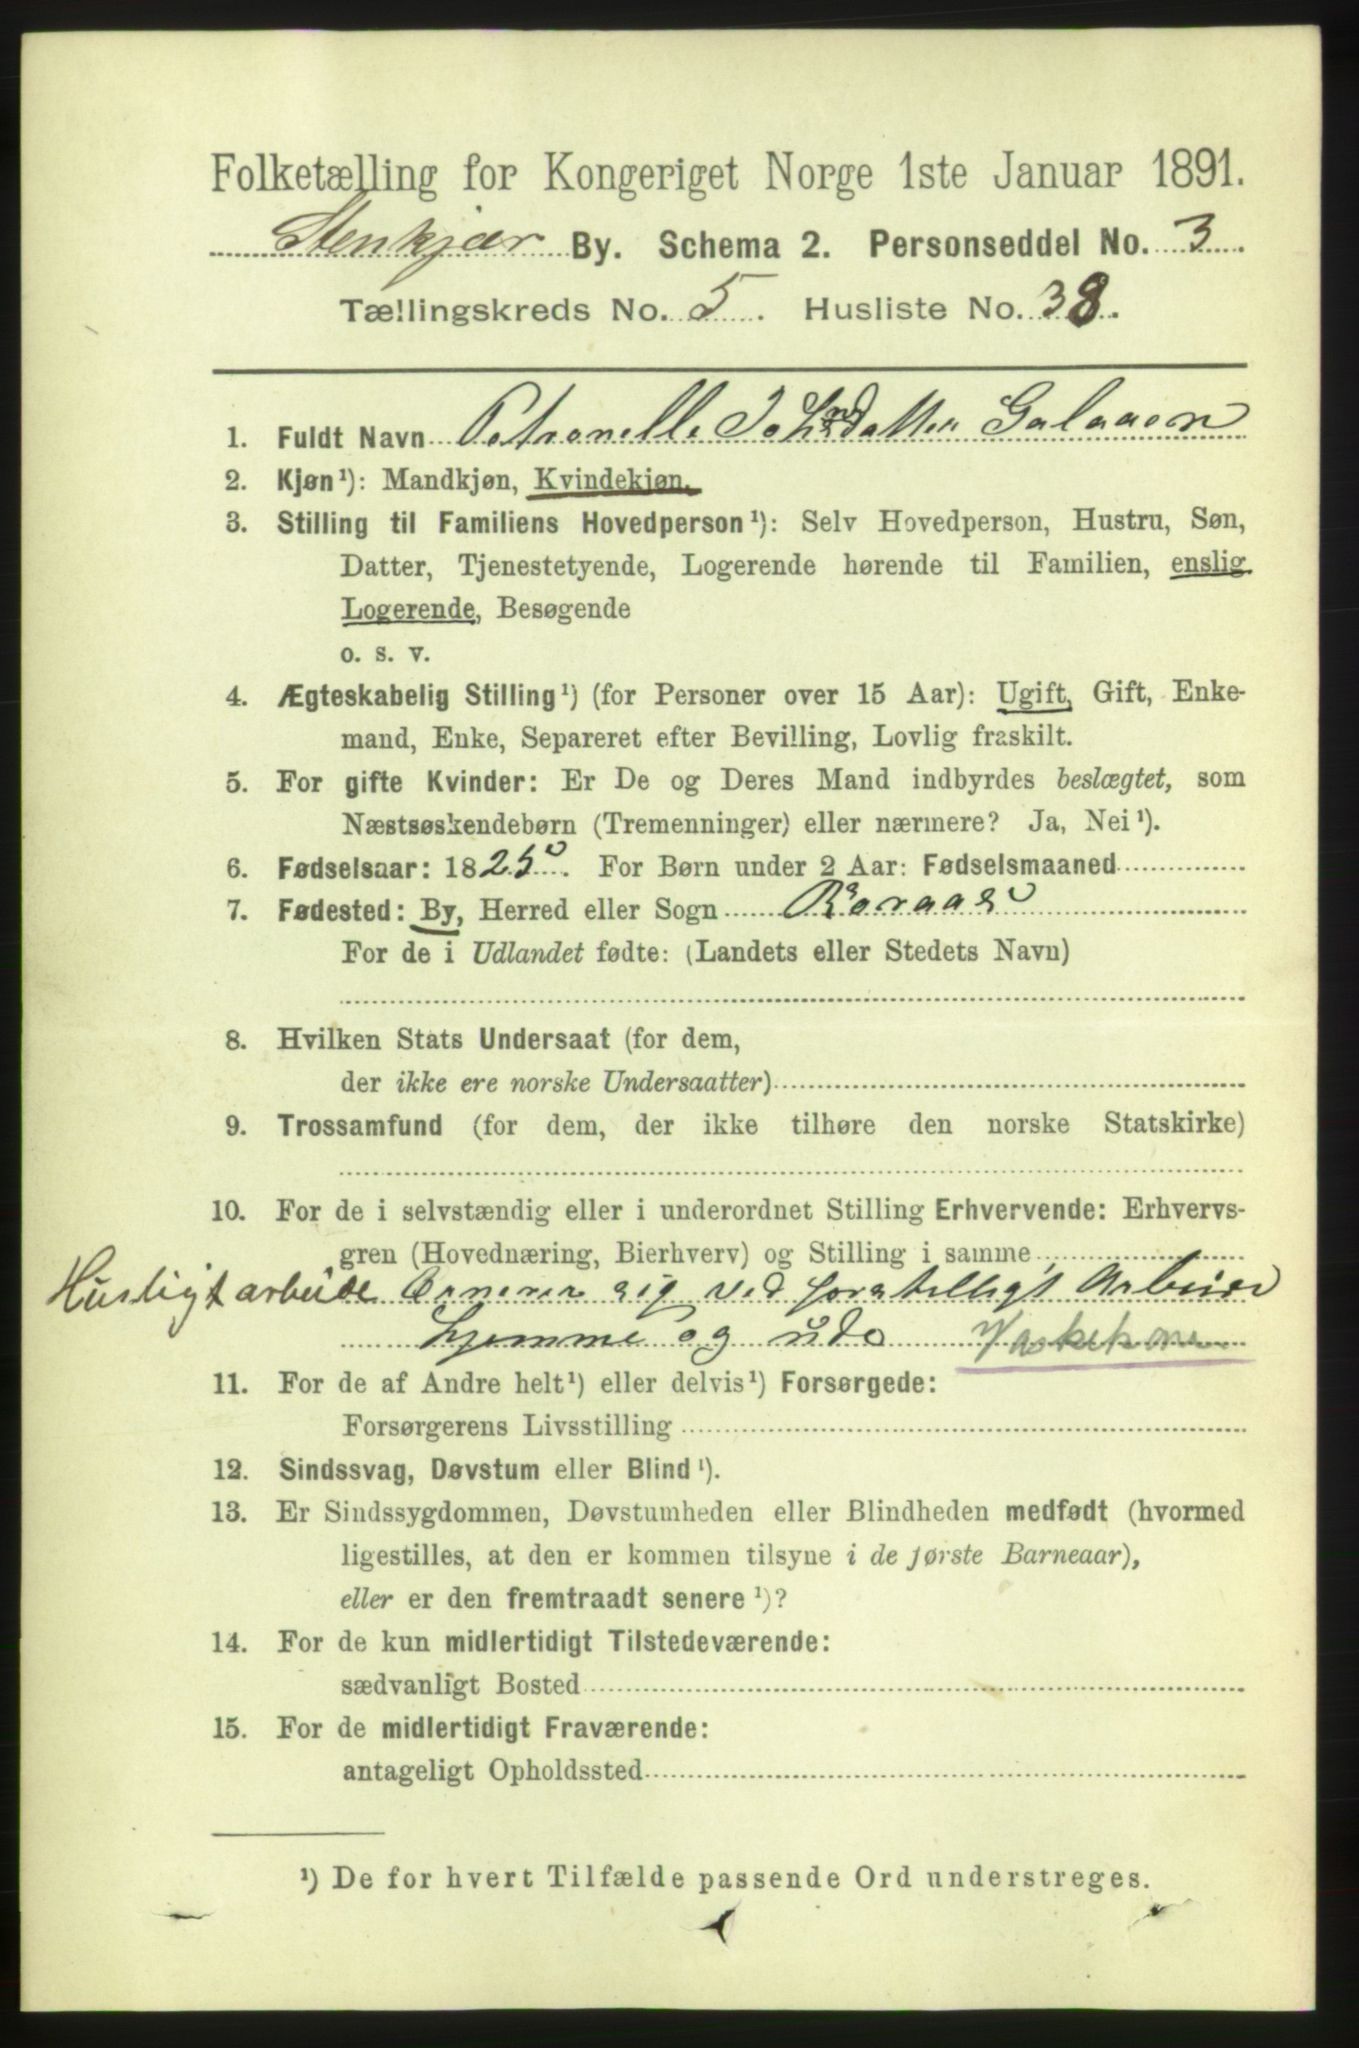 Folketælling for Kongeriget Norge 1ste Januar 1891.
Stenkjær By. Schema 2. Personseddel No. 3.
Tællingskreds No. 5. Husliste No. 38.
1. Fuldt Navn Petronelle Johndatter Galaaen
2. Kjøn¹): Mandkjøn, Kvindekjøn.
3. Stilling til Familiens Hovedperson¹): Selv Hovedperson, Hustru, Søn,
Datter, Tjenestetyende, Logerende hørende til Familien, enslig
Logerende, Besøgende
o. s. v.
4. Ægteskabelig Stilling¹) (for Personer over 15 Aar): Ugift, Gift, Enke-
mand, Enke, Separeret efter Bevilling, Lovlig fraskilt.
5. For gifte Kvinder: Er De og Deres Mand indbyrdes beslægtet, som
Næstsøskendebørn (Tremenninger) eller nærmere? Ja, Nei¹).
6. Fødselsaar: 1825. For Børn under 2 Aar: Fødselsmaaned
7. Fødested: By, Herred eller Sogn Roraas
For de i Udlandet fødte: (Landets eller Stedets Navn)
8. Hvilken Stats Undersaat (for dem,
der ikke ere norske Undersaatter)
9. Trossamfund (for dem, der ikke tilhøre den norske Statskirke)
10. For de i selvstændig eller i underordnet Stilling Erhvervende: Erhvervs-
gren (Hovednæring, Bierhverv) og Stilling i samme
Husligt arbeide Ernerer sig ved forskelligt Arbeide
hjemme og ude Vaskekone
11. For de af Andre helt¹) eller delvis¹) Forsørgede:
Forsørgerens Livsstilling
12. Sindssvag, Døvstum eller Blind¹).
13. Er Sindssygdommen, Døvstumheden eller Blindheden medfødt (hvormed
ligestilles, at den er kommen tilsyne i de første Barneaar),
eller er den fremtraadt senere¹)?
14. For de kun midlertidigt Tilstedeværende:
sædvanligt Bosted
15. For de midlertidigt Fraværende:
antageligt Opholdssted
¹) De for hvert Tilfælde passende Ord understreges.